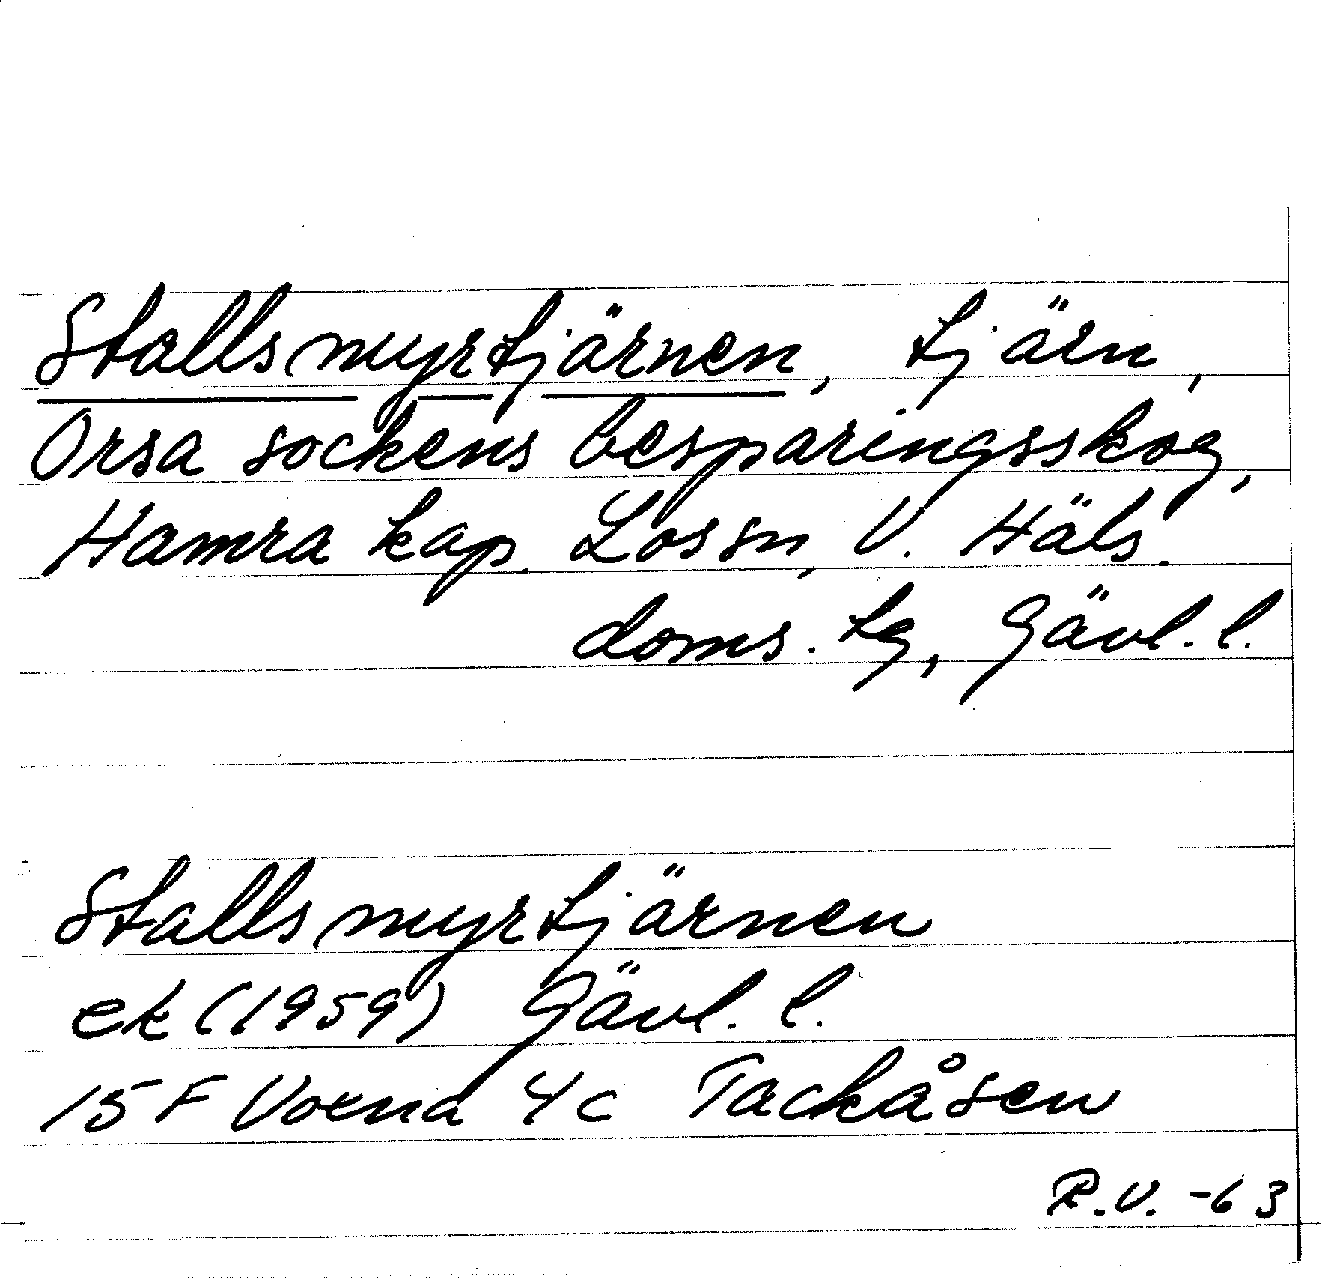 Stallsmyrtjärnen, tjärn,
Orsa sockens besparingsskog,
Hamra kap. Los sn, V. Häls.
doms. tg, Gävl. l.
Stallsmyrtjärnen
ek (1959) Gävl. l.
15 F Voxna 4c Tackåsen
R.V. -63